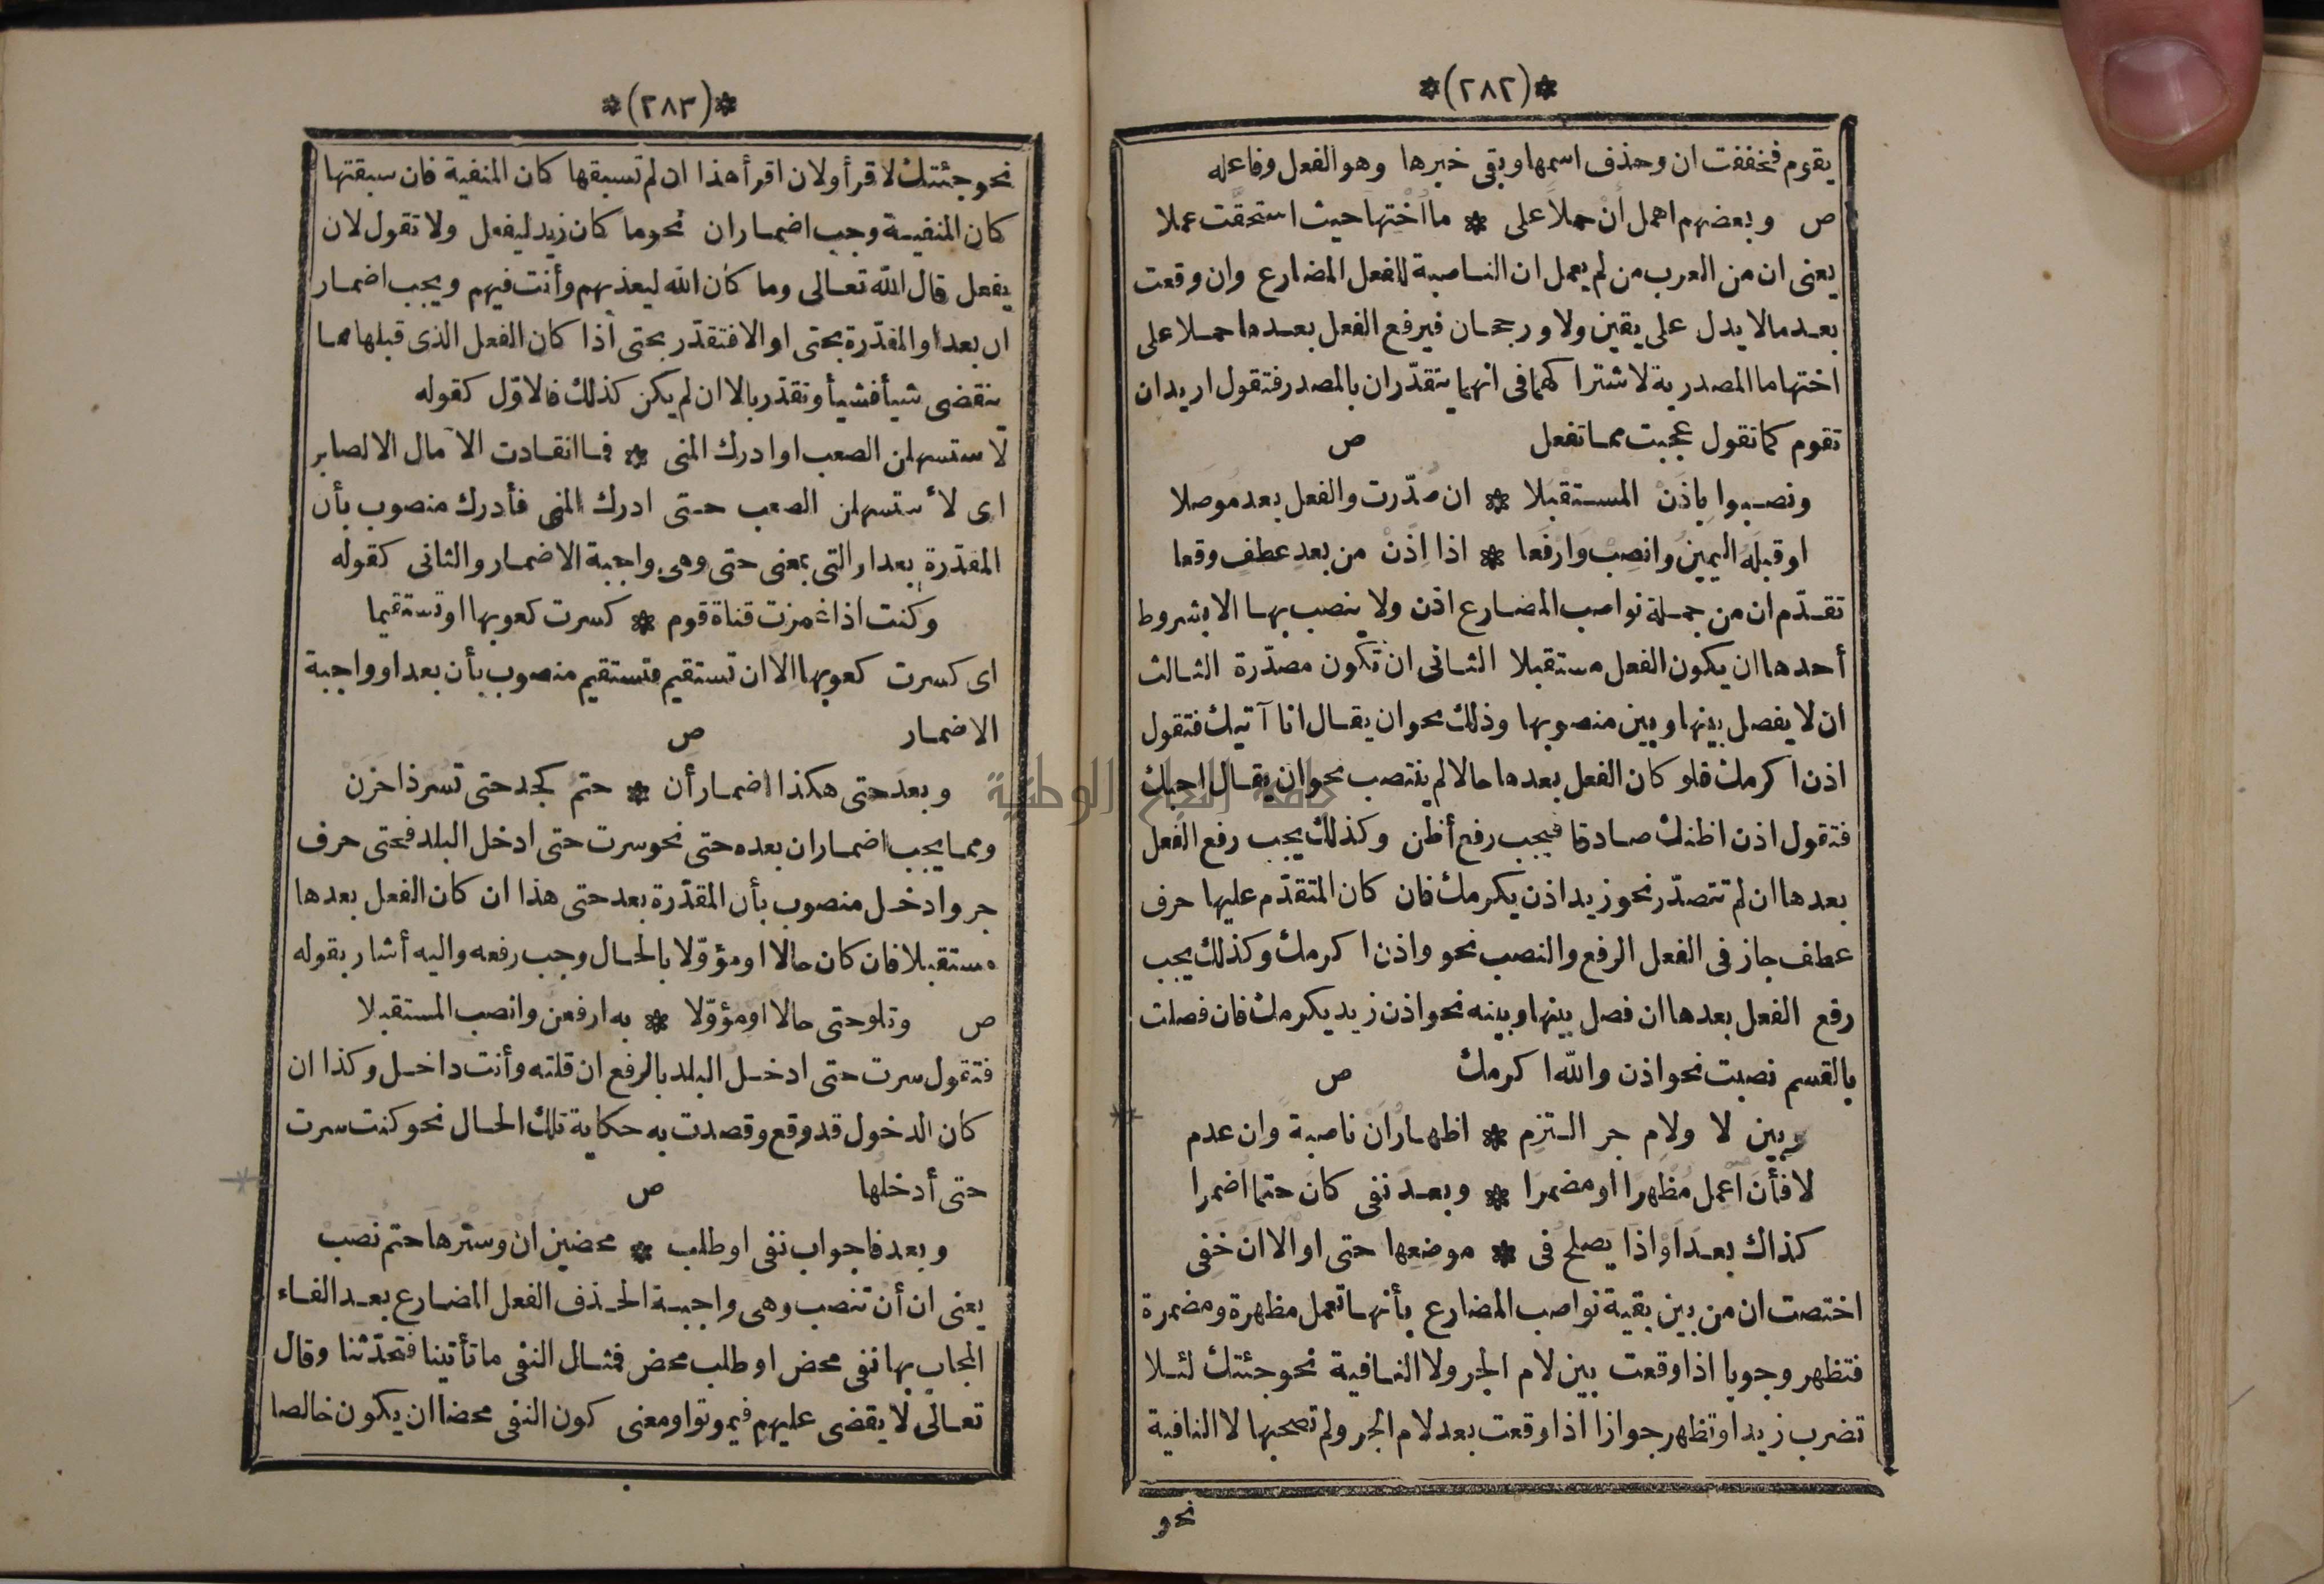 *(٢٨٢)*
يقوم فخففت ان وحذف اسمها وبقى خبرها وهو الفعل وفاعله
ص وبعضهم اهمل أن حملا على * ما اختها حيث استحقت عملا
يعنى ان من العرب من لم يعمل ان الناصبة للفعل المضارع وان وقعت
بعد ما لا يدل على يقين ولا رجحان فيرفع الفعل بعدها حملا على
اختها ما المصدرية لاشتراكهما فى انهما يتقدّران بالمصدر فتقول اريد ان
تقوم كما تقول عجبت مما تفعل ص
ونصبوا بإذن المستقبلا * ان صدّرت والفعل بعد موصلا
او قبله اليمين وانصب وارفعا * اذا إذن من بعد عطف وقعا
تقدّم ان من جملة نواصب المضارع اذن ولا ينصب بها الا بشروط
أحدها ان يكون الفعل مستقبلا الثانى ان تكون مصدّرة الثالث
ان لا يفصل بينها وبين منصوبها وذلك نحو ان يقال انا آتيك فتقول
اذن اكرمك فلو كان الفعل بعدها حالا لم ينتصب نحو ان يقال احبك
فتقول اذن اظنك صادقا فيجب رفع أظن وكذلك يجب رفع الفعل
بعدها ان لم تتصدّر نحو زيد اذن يكرمك فان كان المتقدّم عليها حرف
عطف جاز فى الفعل الرفع والنصب نحو واذن اكرمك وكذلك يجب
رفع الفعل بعدها ان فصل بينها وبينه نحو اذن زيد يكرمك فان فصلت
بالقسم نصبت نحو اذن والله اكرمك ص
وبين لا ولام جر التزم * اظهار ان ناصبة وان عدم
لا فأن اعمل مظهرا او مضمرا * وبعد نفى كان حتما اضمرا
كذاك بعد او اذا يصلح فى * موضعها حتى او الا ان خفى
اختصت ان من بين بقية نواصب المضارع بأنها تعمل مظهرة ومضمرة
فتظهر وجوبا اذا وقعت بين لام الجر ولا النافية نحو جئتك لئلا
تضرب زيدا وتظهر جوازا اذا وقعت بعد لام الجر ولم تصحبها لا النافية
نحو
*(٢٨٣)*
نحو جئتك لاقرأ ولان اقرأ هذا ان لم تسبقها كان المنفية فان سبقتها
كان المنفية وجب اضمار ان نحو ما كان زيد ليفعل ولا تقول لان
يفعل قال الله تعالى وما كان الله ليعذبهم وأنت فيهم ويجب اضمار
ان بعد او المقدّرة بحتى او الا فتقدّر بحتى اذا كان الفعل الذى قبلها مما
ينقضى شيأ فشيأ وتقدّر بالا ان لم يكن كذلك فالاوّل كقوله
لاستسهلن الصعب او ادرك المنى * فما انقادت الآمال الا لصابر
اى لأستسهلن الصعب حتى ادرك المنى فأدرك منصوب بأن
المقدّرة بعد او التى بمعنى حتى وهى واجبة الاضمار والثانى كقوله
وكنت اذا غمزت قناة قوم * كسرت كعوبها او تستقيما
اى كسرت كعوبها الا ان تستقيم فتستقيم منصوب بأن بعد او واجبة
الاضمار ص
وبعد حتى هكذا اضمار أن * حتم كجد حتى تسرّ ذا حزن
ومما يجب اضمار ان بعده حتى نحو سرت حتى ادخل البلد فحتى حرف
جر وادخل منصوب بأن المقدّرة بعد حتى هذا ان كان الفعل بعدها
مستقبلا فان كان حالا او مؤوّلا بالحال وجب رفعه واليه أشار بقوله
ص وتلو حتى حالا او مؤوّلا * به ارفعن وانصب المستقبلا
فتقول سرت حتى ادخل البلد بالرفع ان قلته وأنت داخل وكذا ان
كان الدخول قد وقع وقصدت به حكاية تلك الحال نحو كنت سرت
حتى أدخلها ص
وبعد فا جواب نفى او طلب * محضين ان وسترها حتم نصب
يعنى ان أن تنصب وهى واجبة الحذف الفعل المضارع بعد الفاء
المجاب بها نفى محض او طلب محض فمثال النفى ما تأتينا فتحدّثنا وقال
تعالى لا يقضى عليهم فيموتوا ومعنى كون النفى محضا ان يكون خالصا
جامعة النجاح الوطنية